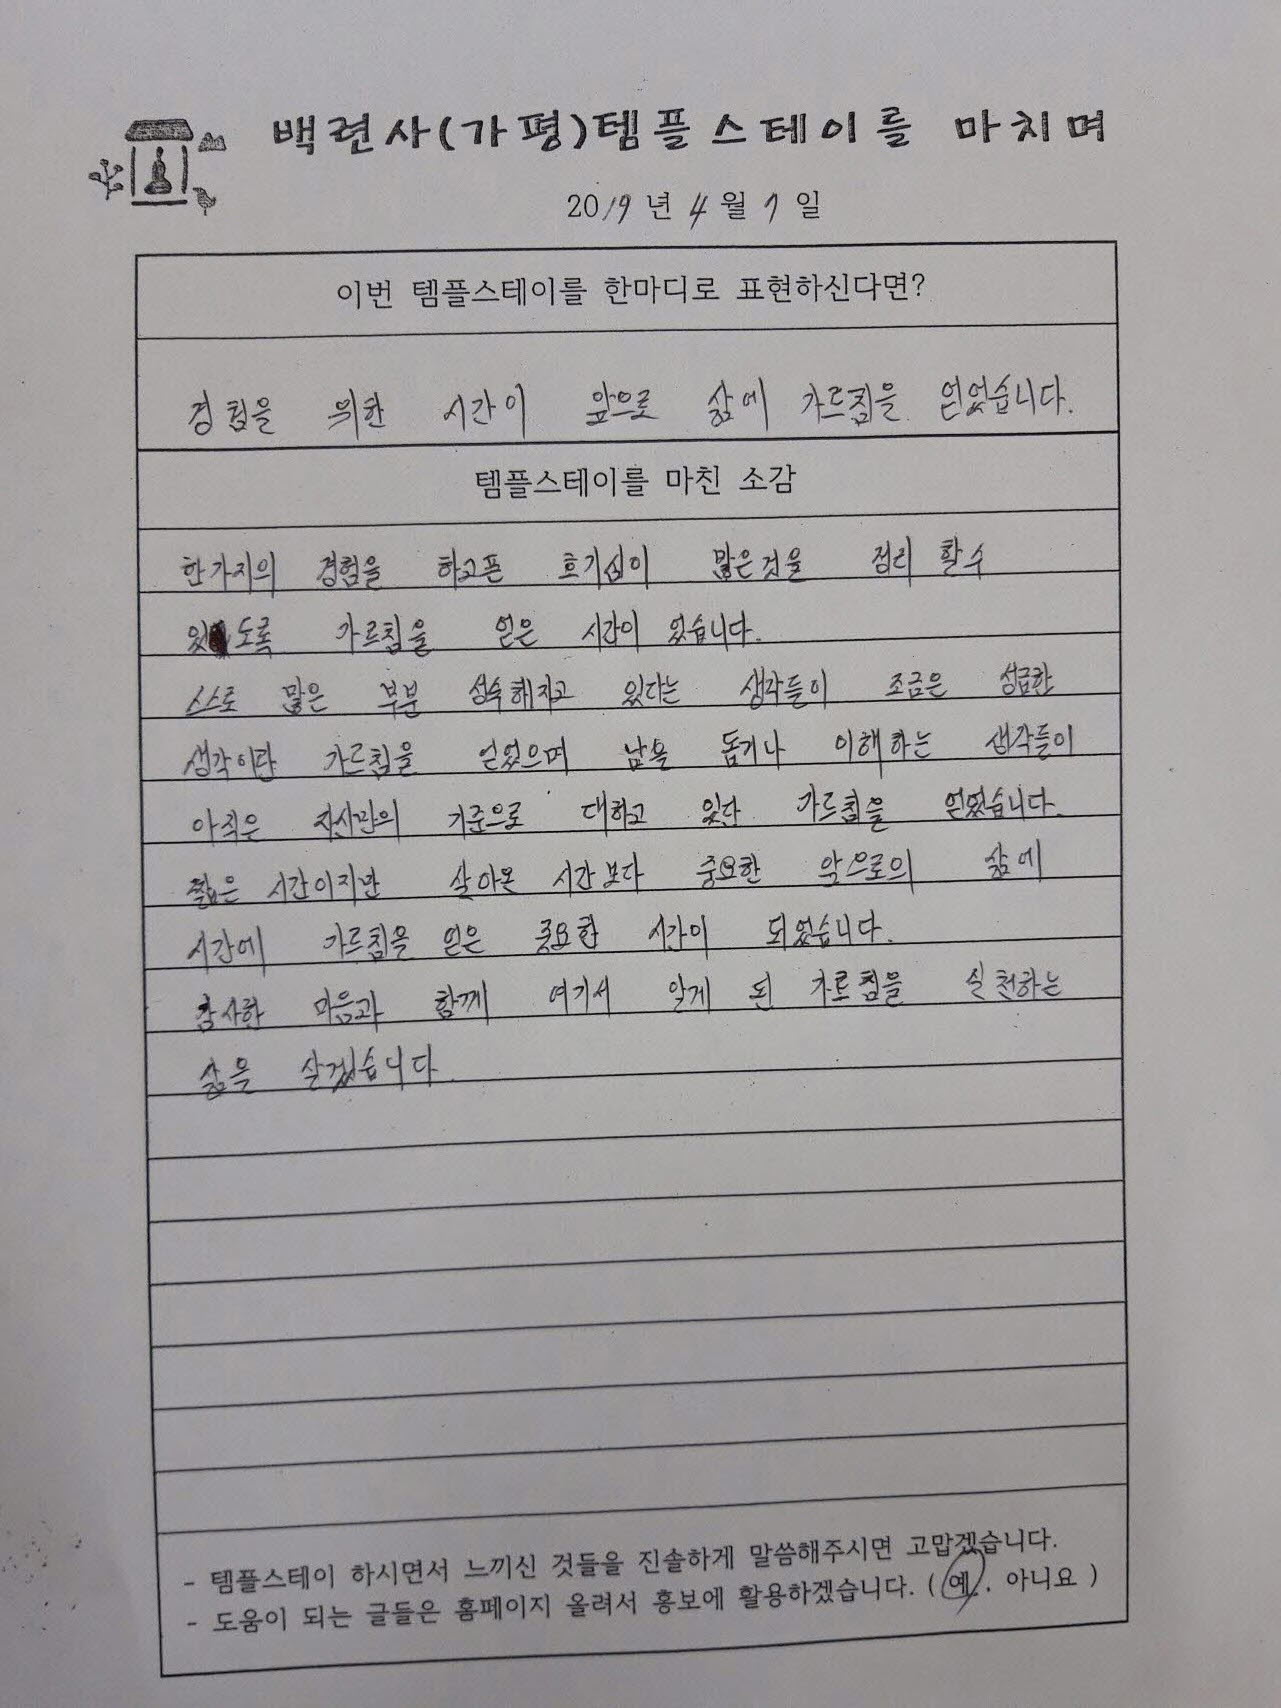 백련사(가평)템플스테이를 마치며
2019년 4월 7일
이번 템플스테이를 한마디로 표현하신다면?
경험을 위한 시간이 앞으로 삶에 가르침을 얻었습니다.
템플스테이를 마친 소감
한가지의 경험을 하고픈 호기심이 많은것을 정리 할수
있도록 가르침을 얻은 시간이 있습니다.
스스로 많은 부분 성숙해지고 있다는 생각들이 조금은 성급한
생각이란 가르침을 얻었으며 남을 돕거나 이해하는 생각들이
아직은 자신만의 기준으로 대하고 있단 가르침을 얻었습니다.
짧은 시간이지만 살아온 시간보다 중요한 앞으로의 삶에
시간에 가르침을 얻은 중요한 시간이 되었습니다.
감사한 마음과 함께 여기서 알게 된 가르침을 실천하는
삶을 살겠습니다
- 템플스테이 하시면서 느끼신 것들을 진솔하게 말씀해주시면 고맙겠습니다.
- 도움이 되는 글들은 홈페이지 올려서 홍보에 활용하겠습니다. (예, 아니요)